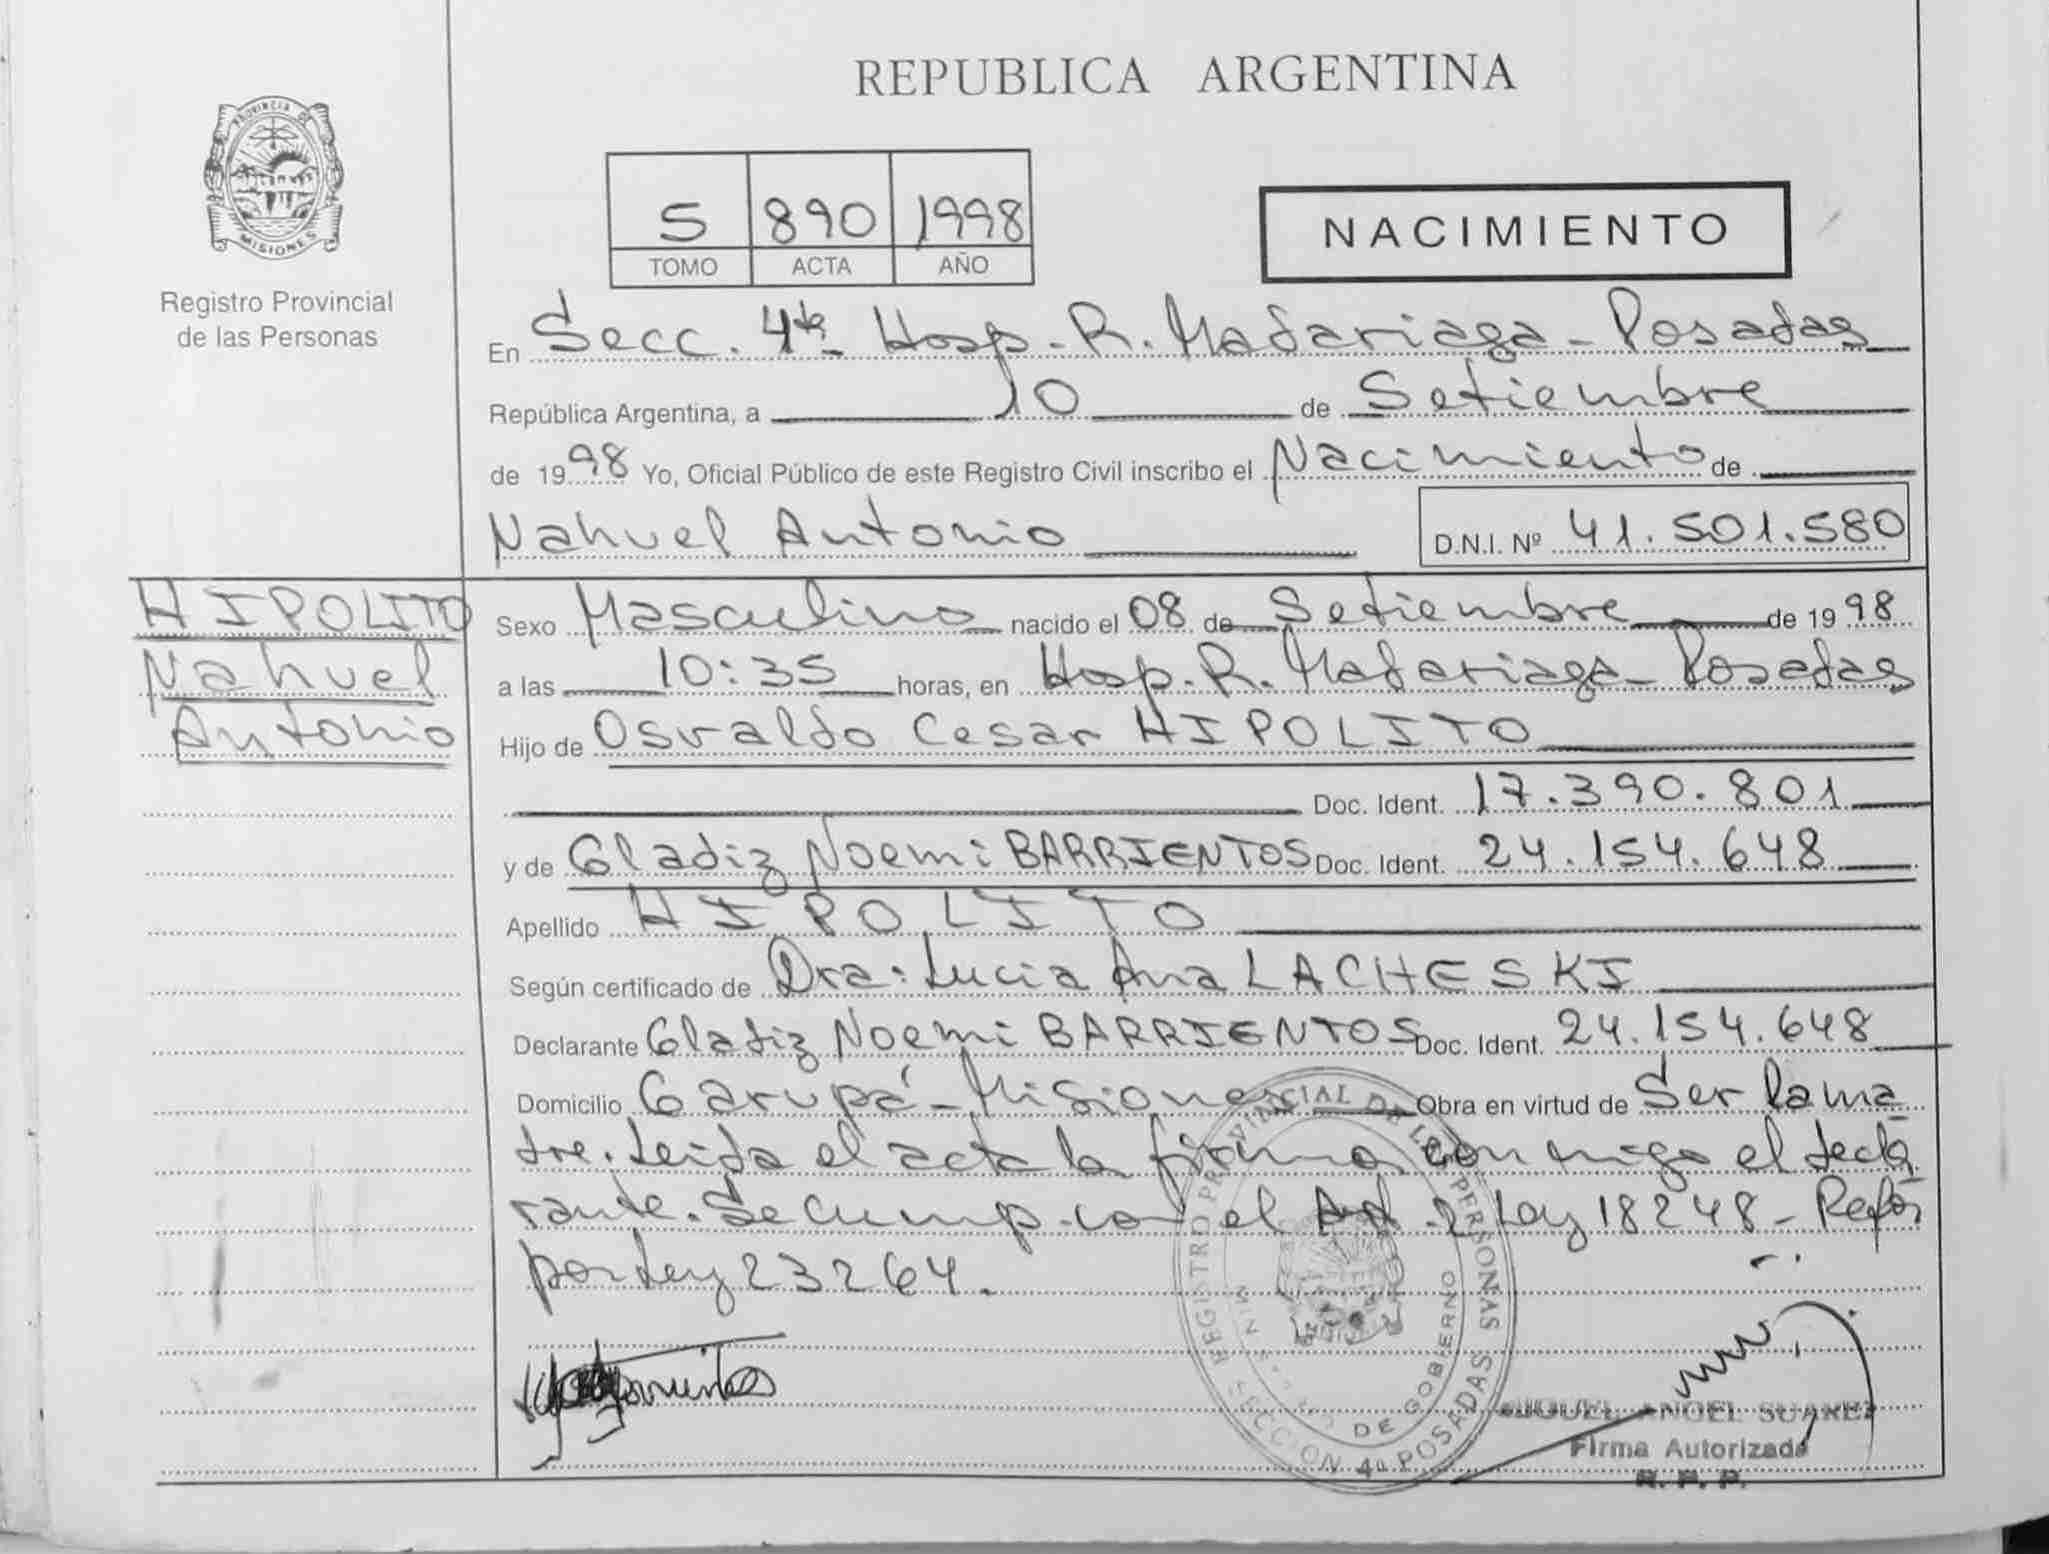 REPUBLICA ARGENTINA
PROVINCIA DE
MISIONES
Registro Provincial
de las Personas
5 890 1998
TOMO ACTA AÑO
NACIMIENTO
En Secc. 4ta Hosp. R. Madariaga - Posadas
República Argentina, a 10 de Setiembre
de 1998 Yo, Oficial Público de este Registro Civil inscribo el Nacimiento de
Nahuel Antonio D.N.I. Nº 41.501.580
HIPOLITO
Nahuel
Antonio
Sexo Masculino nacido el 08 de Setiembre de 1998
a las 10:35 horas, en Hosp. R. Madariaga - Posadas
Hijo de Osvaldo Cesar HIPOLITO
Doc. Ident. 17.390.801
y de Gladiz Noemi BARRIENTOS Doc. Ident. 24.154.648
Apellido HIPOLITO
Según certificado de Dra: Lucia Ana LACHESKI
Declarante Gladiz Noemi BARRIENTOS Doc. Ident. 24.154.648
Domicilio Garupá - Misiones Obra en virtud de Ser la ma
dre. Leida el acta la firma conmigo el decla
rante. Se cump. con el Art. 2 Ley 18248 - Refor
por Ley 23264.
REGISTRO PROVINCIAL DE LAS PERSONAS
SECCION 4a POSADAS
DE GOBIERNO
MIGUEL ANGEL SUAREZ
Firma Autorizada
R. P. P.